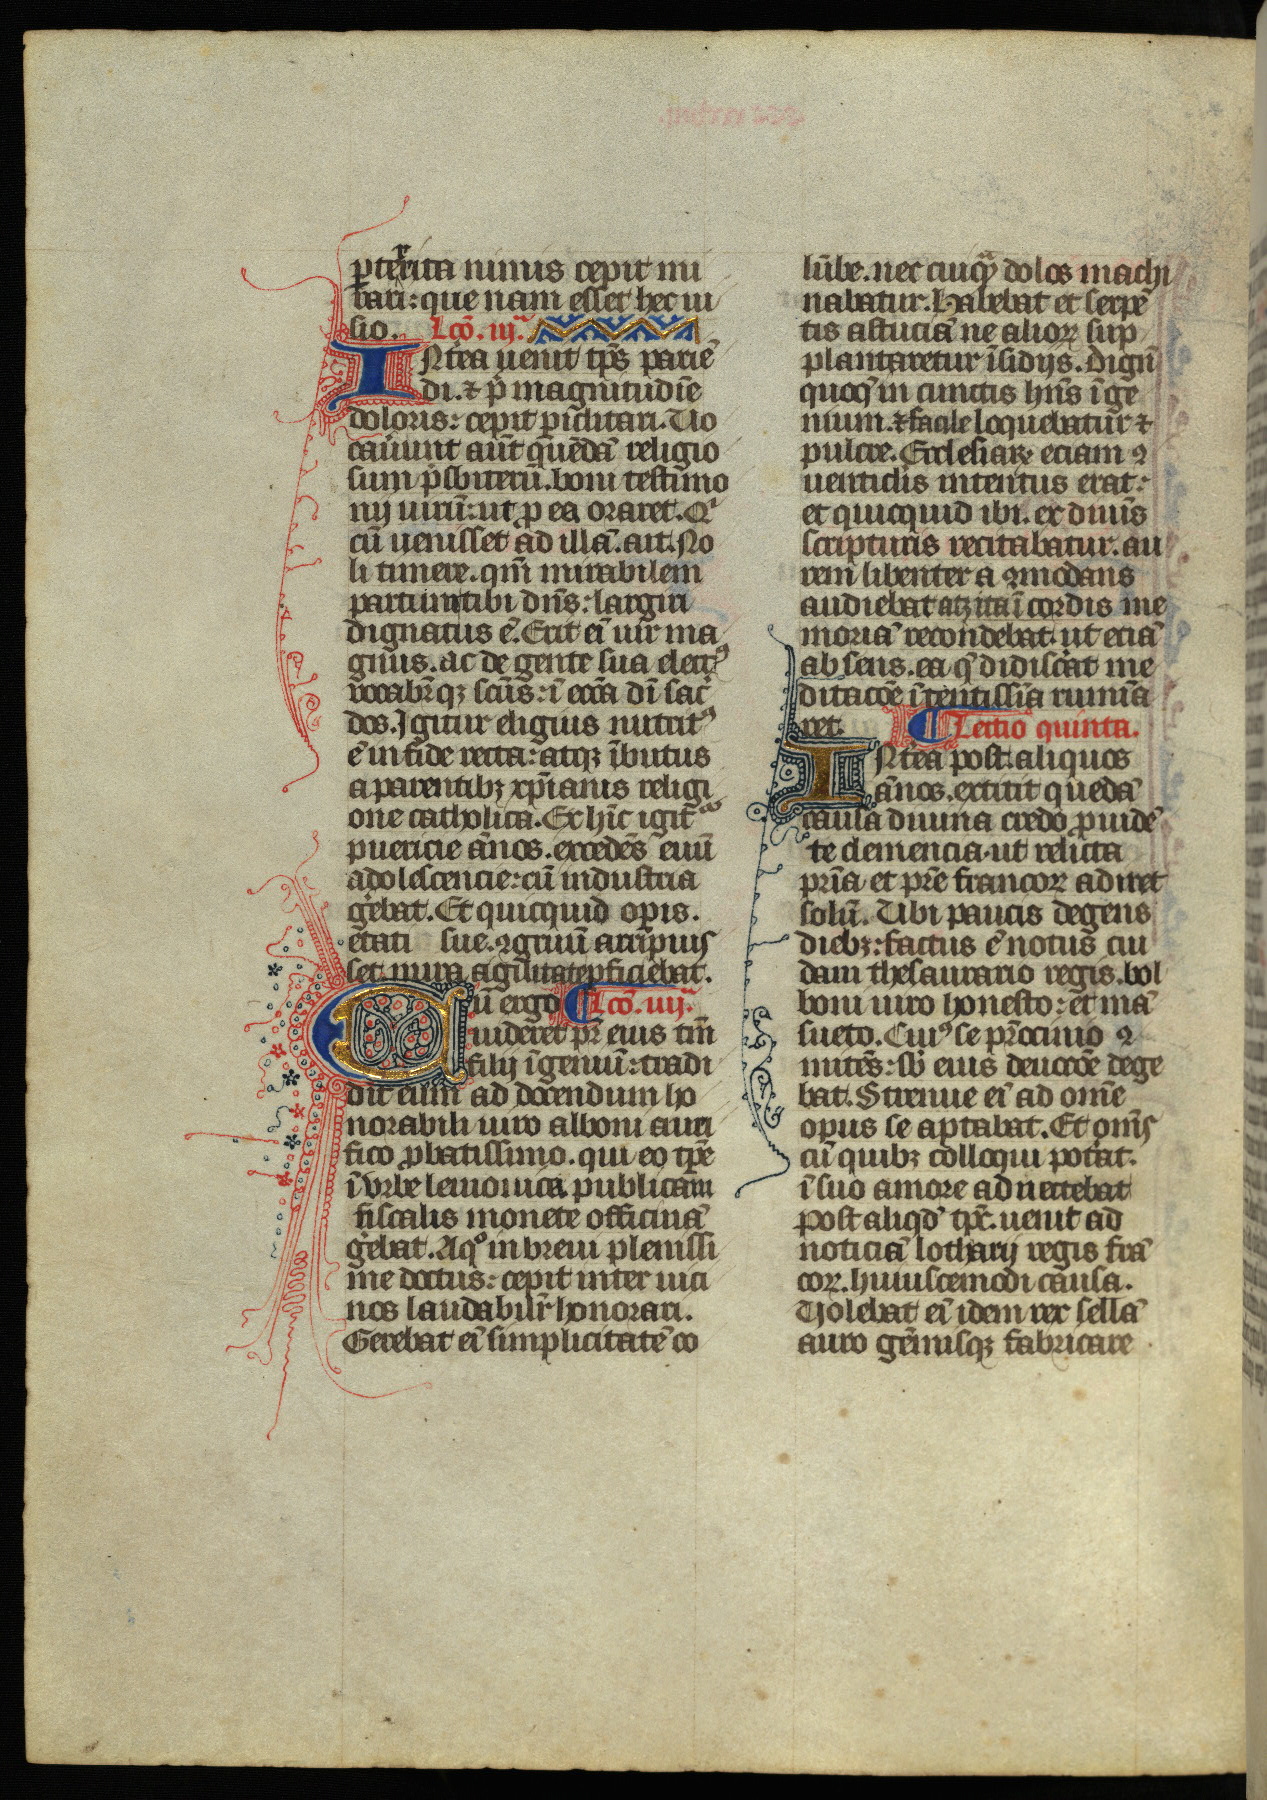 ꝑterrita nimis cepit mi
rari: que nam esset hec ui
sio. Lcō. iijᵃ.
INtea uenit tp̄s parīe
di. ⁊ p̄ magnitudīe
doloris: cepit piclitari. Uo
cauūnt aut̄ quēdā religio
sum p̄sbiterū. boni testimo
nij uirū: ut ꝓ ea oraret. Qⁱ
cū uenisset ad illā. ait. No
li timere. qm̄ mirabilem
partum tibi dn̄s: largiri
dignatus ē. Erit ei uir ma
gnus. ac de gente sua elect⁹
uocabit̄qꝫ scūs: ī ecc̄a dī sac̄
dos. Igitur eligius nutrit⁹
ē in fide recta: atqꝫ ībutus
a parentibꝫ xp̄ianis religi
one catholica. Ex hīc igit̄
puericie ānos. excedēs euū
adolescencie: cū industria
gēbat. Et quicquid opis.
etati sue. ꝯgruū arripuis
set. mira agilitate ꝑficiebat.
Cū ergo Lcō. iiijᵃ.
uideret pr̄ eius tm̄
filij īgeniū: tradi
dit eum ad docendum ho
norabili uiro alboni auri
fico ꝓbatissimo. qui eo tp̄e
ī vrbe lemouica publicam
fiscalis monete officinā
gēbat. A qᵒ in breui plenissi
me doctus: cepit inter uici
nos laudabilit̄ honorari.
Gerebat ei simplicitatē co
lūbe. nec cuiqᵃ dolos machi
nabatur. Habebat et serpē
tis astuciā ne alioꝝ sup
plantaretur īsidijs. Dignū
quoqꝫ in cunctis hn̄s īge
nium. ⁊ facile loquebatur ⁊
pulcre. Ecclesiaꝝ eciam ꝯ
uenticlis intentus erat:
et quicquid ibi. ex diuīs
scripturis recitabatur. au
rem libenter a ꝯmodans
audiebat atqꝫ ita ī cordis me
moriā recondebat. ut eciā
absens. ea q̄ didiscāt me
ditacōe ītentissīa rumīa
ret. Lectio quinta.
INtea post. aliquos
ānos. extitit quedā
causa diuina credo ꝓuidē
te clemencia. ut relicta
pr̄ia et pr̄e francoꝝ adiret
solū. Ubi paucis degens
diebꝫ: factus ē notus cui
dam thesaurario regis. bob
boni uiro honesto: et mā
sueto. Cui⁹ se pr̄ocinio ꝯ
mitēs: sb̄ eius deuocōe dege
bat. Strenue ei ad om̄e
opus se aptabat. Et om̄s
cū quibꝫ colloqui potāt.
ī suo amore adnectebat
Post aliqd̄ tp̄c. uenit ad
noticiā lotharij regis frā
coꝝ. huiuscemodi causa.
Uolebat ei idem rex sellā
auro gēmisqꝫ fabricare